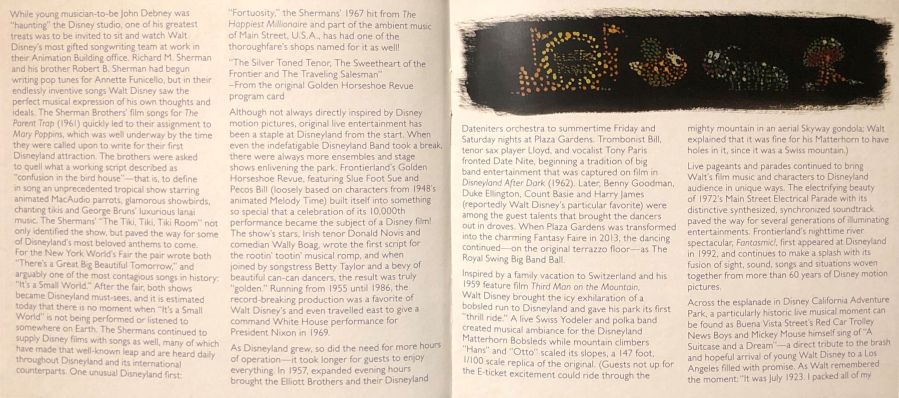 While young musician-to-be John Debney was
"haunting" the Disney studio, one of his greatest
treats was to be invited to sit and watch Walt
Disney's most gifted songwriting team at work in
their Animation Building office. Richard M. Sherman
and his brother Robert B. Sherman had begun
writing pop tunes for Annette Funicello, but in their
endlessly inventive songs Walt Disney saw the
perfect musical expression of his own thoughts and
ideals. The Sherman Brothers' film songs for The
Parent Trap (1961) quickly led to their assignment to
Mary Poppins, which was well underway by the time
they were called upon to write for their first
Disneyland attraction. The brothers were asked
to quell what a working script described as
"confusion in the bird house"—that is, to define
in song an unprecedented tropical show starring
animated MacAudio parrots, glamorous showbirds,
chanting tikis and George Bruns' luxurious lanai
music. The Shermans' "The Tiki, Tiki, Tiki Room" not
only identified the show, but paved the way for some
of Disneyland's most beloved anthems to come.
For the New York World's Fair the pair wrote both
"There's a Great Big Beautiful Tomorrow," and
arguably one of the most contagious songs in history:
"It's a Small World." After the fair, both shows
became Disneyland must-sees, and it is estimated
today that there is no moment when "It's a Small
World" is not being performed or listened to
somewhere on Earth. The Shermans continued to
supply Disney films with songs as well, many of which
have made that well-known leap and are heard daily
throughout Disneyland and its international
counterparts. One unusual Disneyland first:
"Fortuosity," the Shermans' 1967 hit from The
Happiest Millionaire and part of the ambient music
of Main Street, U.S.A., has had one of the
thoroughfare's shops named for it as well!
"The Silver Toned Tenor, The Sweetheart of the
Frontier and The Traveling Salesman"
–From the original Golden Horseshoe Revue
program card
Although not always directly inspired by Disney
motion pictures, original live entertainment has
been a staple at Disneyland from the start. When
even the indefatigable Disneyland Band took a break,
there were always more ensembles and stage
shows enlivening the park. Frontierland's Golden
Horseshoe Revue, featuring Slue Foot Sue and
Pecos Bill (loosely based on characters from 1948's
animated Melody Time) built itself into something
so special that a celebration of its 10,000th
performance became the subject of a Disney film!
The show's stars, Irish tenor Donald Novis and
comedian Wally Boag, wrote the first script for
the rootin' tootin' musical romp, and when
joined by songstress Betty Taylor and a bevy of
beautiful can-can dancers, the result was truly
"golden." Running from 1955 until 1986, the
record-breaking production was a favorite of
Walt Disney's and even travelled east to give a
command White House performance for
President Nixon in 1969.
As Disneyland grew, so did the need for more hours
of operation—it took longer for guests to enjoy
everything. In 1957, expanded evening hours
brought the Elliott Brothers and their Disneyland
Dateniters orchestra to summertime Friday and
Saturday nights at Plaza Gardens. Trombonist Bill,
tenor sax player Lloyd, and vocalist Tony Paris
fronted Date Nite, beginning a tradition of big
band entertainment that was captured on film in
Disneyland After Dark (1962). Later, Benny Goodman,
Duke Ellington, Count Basie and Harry James
(reportedly Walt Disney's particular favorite) were
among the guest talents that brought the dancers
out in droves. When Plaza Gardens was transformed
into the charming Fantasy Faire in 2013, the dancing
continued—on the original terrazzo floor—as The
Royal Swing Big Band Ball.
Inspired by a family vacation to Switzerland and his
1959 feature film Third Man on the Mountain,
Walt Disney brought the icy exhilaration of a
bobsled run to Disneyland and gave his park its first
"thrill ride." A live Swiss Yodeler and polka band
created musical ambiance for the Disneyland
Matterhorn Bobsleds while mountain climbers
"Hans" and "Otto" scaled its slopes, a 147 foot,
1/100 scale replica of the original. (Guests not up for
the E-ticket excitement could ride through the
mighty mountain in an aerial Skyway gondola; Walt
explained that it was fine for his Matterhorn to have
holes in it, since it was a Swiss mountain.)
Live pageants and parades continued to bring
Walt's film music and characters to Disneyland
audience in unique ways. The electrifying beauty
of 1972's Main Street Electrical Parade with its
distinctive synthesized, synchronized soundtrack
paved the way for several generations of illuminating
entertainments. Frontierland's nighttime river
spectacular, Fantasmic!, first appeared at Disneyland
in 1992, and continues to make a splash with its
fusion of sight, sound, songs and situations woven
together from more than 60 years of Disney motion
pictures.
Across the esplanade in Disney California Adventure
Park, a particularly historic live musical moment can
be found as Buena Vista Street's Red Car Trolley
News Boys and Mickey Mouse himself sing of "A
Suitcase and a Dream"—a direct tribute to the brash
and hopeful arrival of young Walt Disney to a Los
Angeles filled with promise. As Walt remembered
the moment: "It was July 1923. I packed all of my